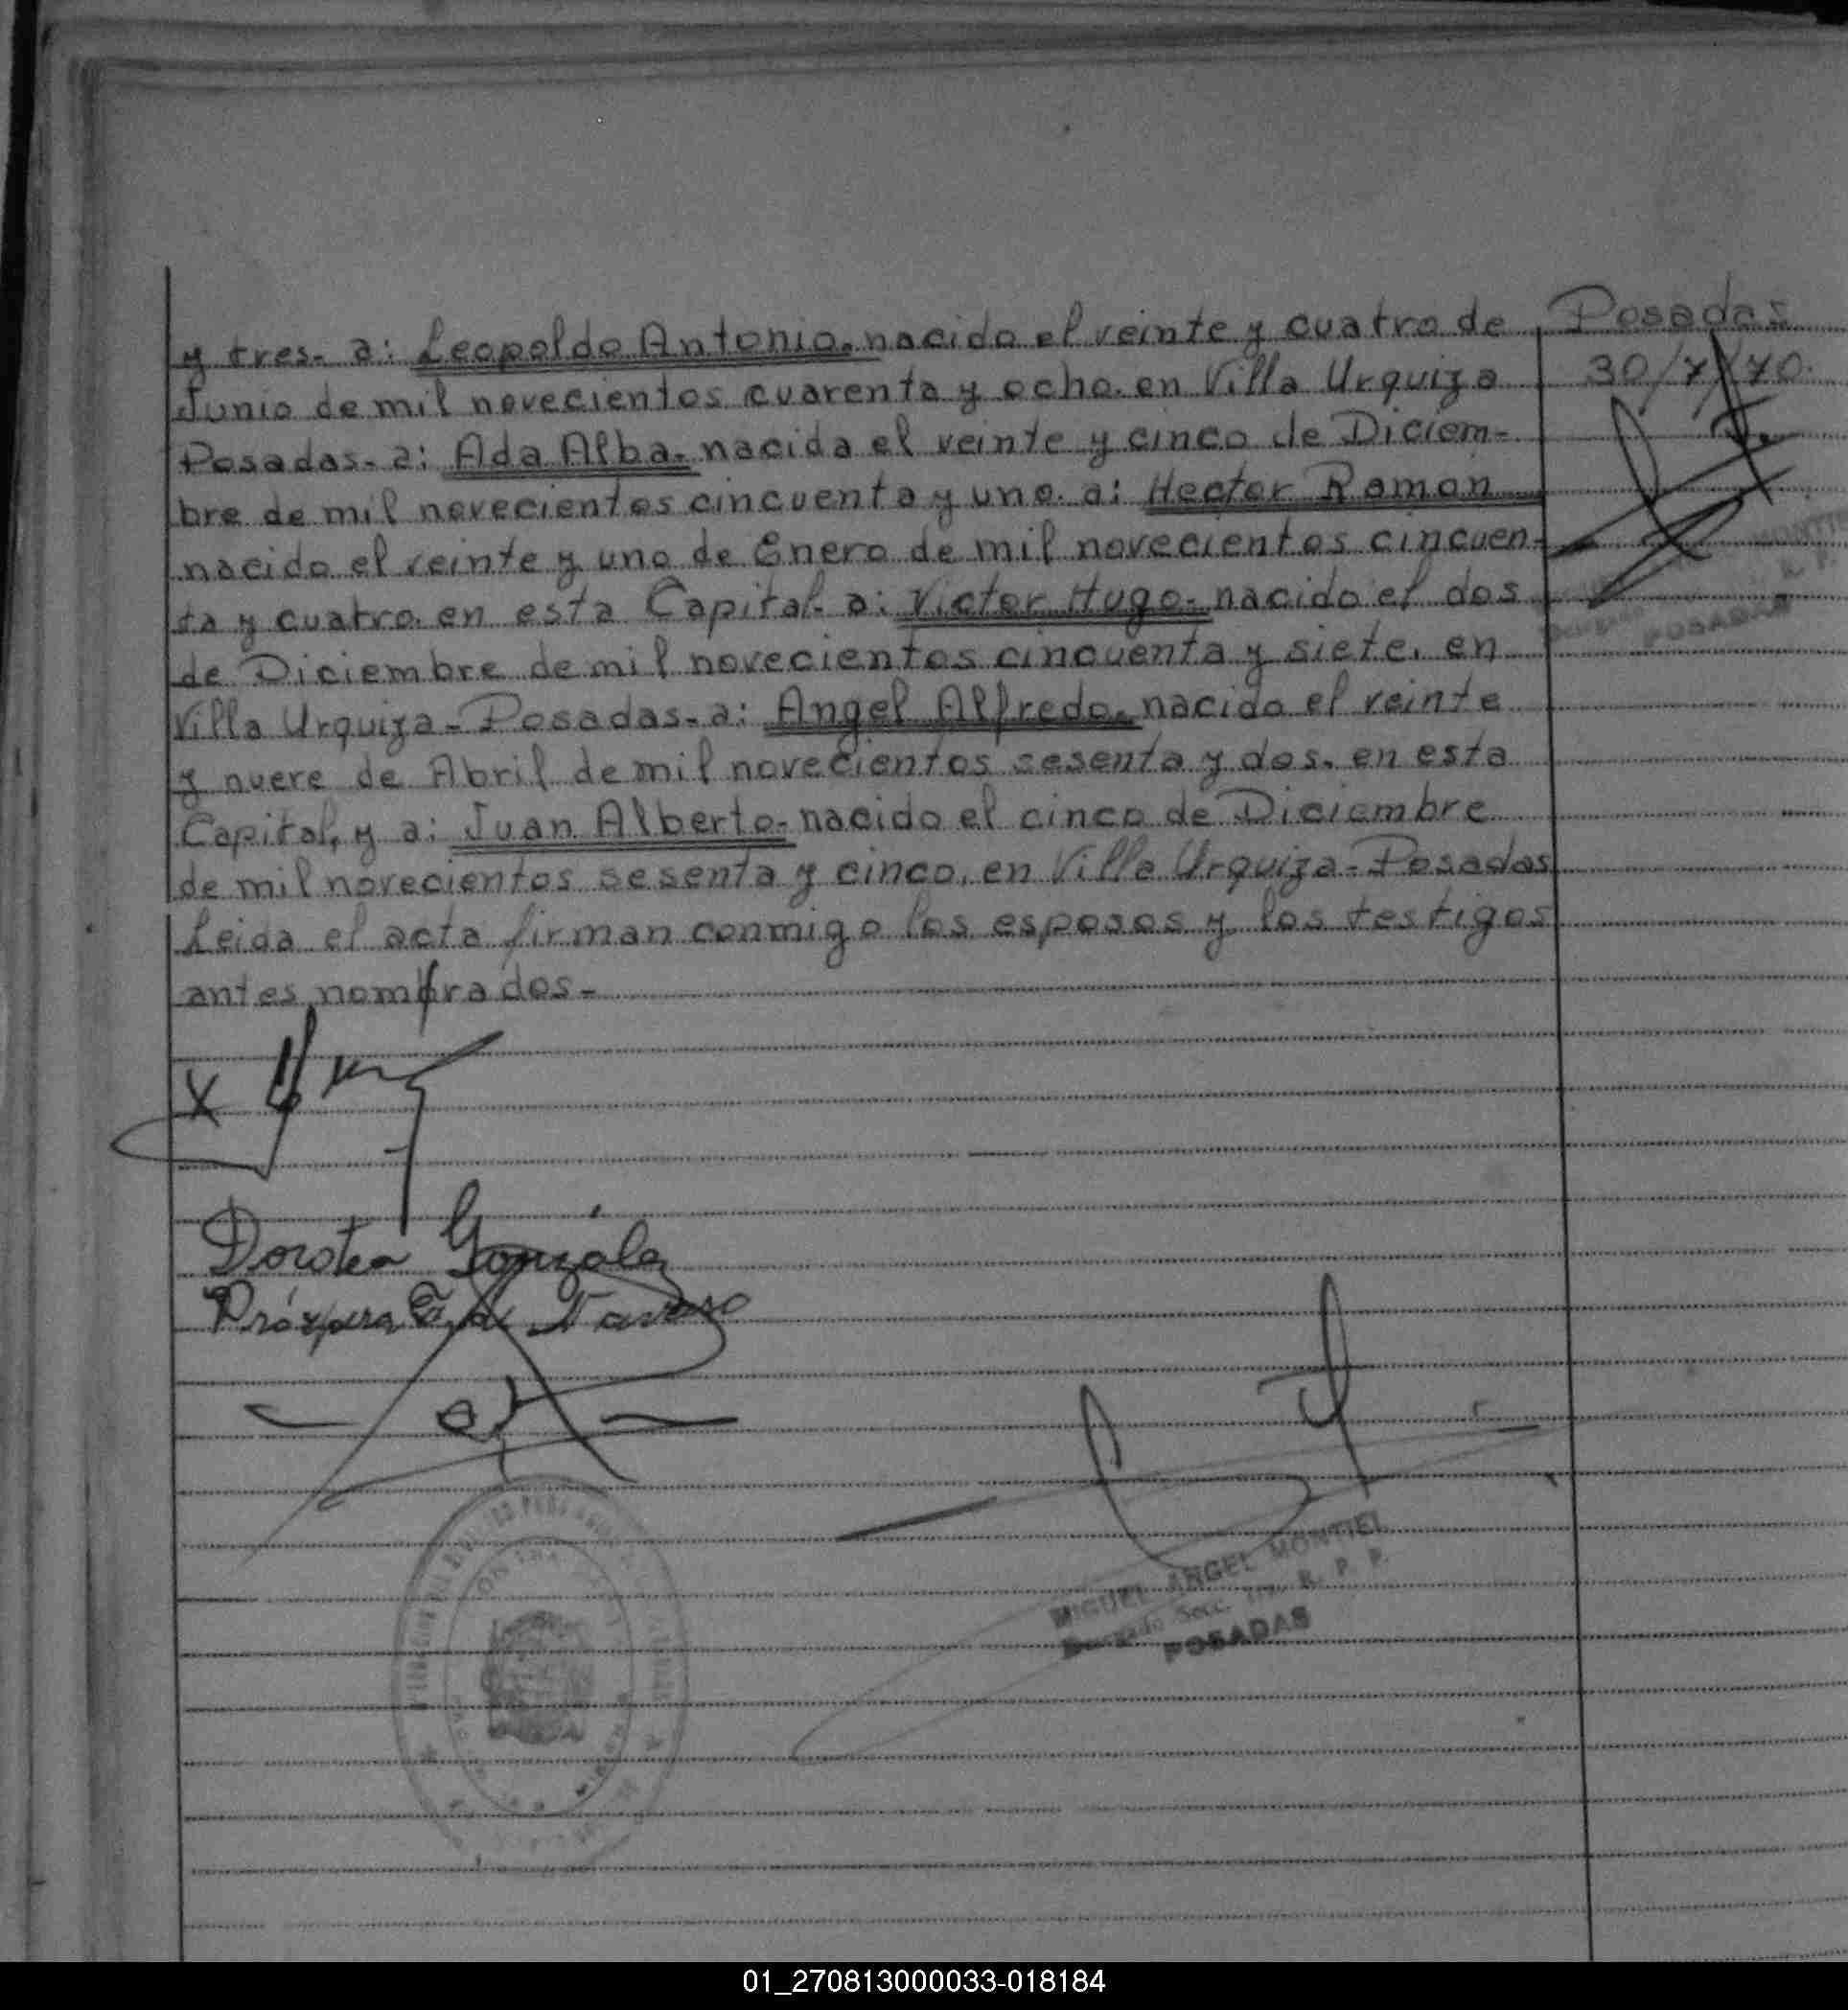 y tres. a: Leopoldo Antonio. nacido el veinte y cuatro de
Junio de mil novecientos cuarenta y ocho. en Villa Urquiza
Posadas. a: Ada Alba. nacida el veinte y cinco de Diciem-
bre de mil novecientos cincuenta y uno. a: Hector Ramon
nacido el veinte y uno de Enero de mil novecientos cincuen-
ta y cuatro. en esta Capital. a: Victor Hugo. nacido el dos
de Diciembre de mil novecientos cincuenta y siete. en
Villa Urquiza - Posadas. a: Angel Alfredo. nacido el veinte
y nueve de Abril de mil novecientos sesenta y dos. en esta
Capital, y a: Juan Alberto. nacido el cinco de Diciembre
de mil novecientos sesenta y cinco. en Villa Urquiza - Posadas
Leida el acta firman conmigo los esposos y los testigos
antes nombrados -
Posadas
30/7/70.
MONTIEL
R. P.
POSADAS
X
Dorotea González
de
MIGUEL ANGEL MONTIEL
Secc. R. P. P.
POSADAS
01_270813000033-018184